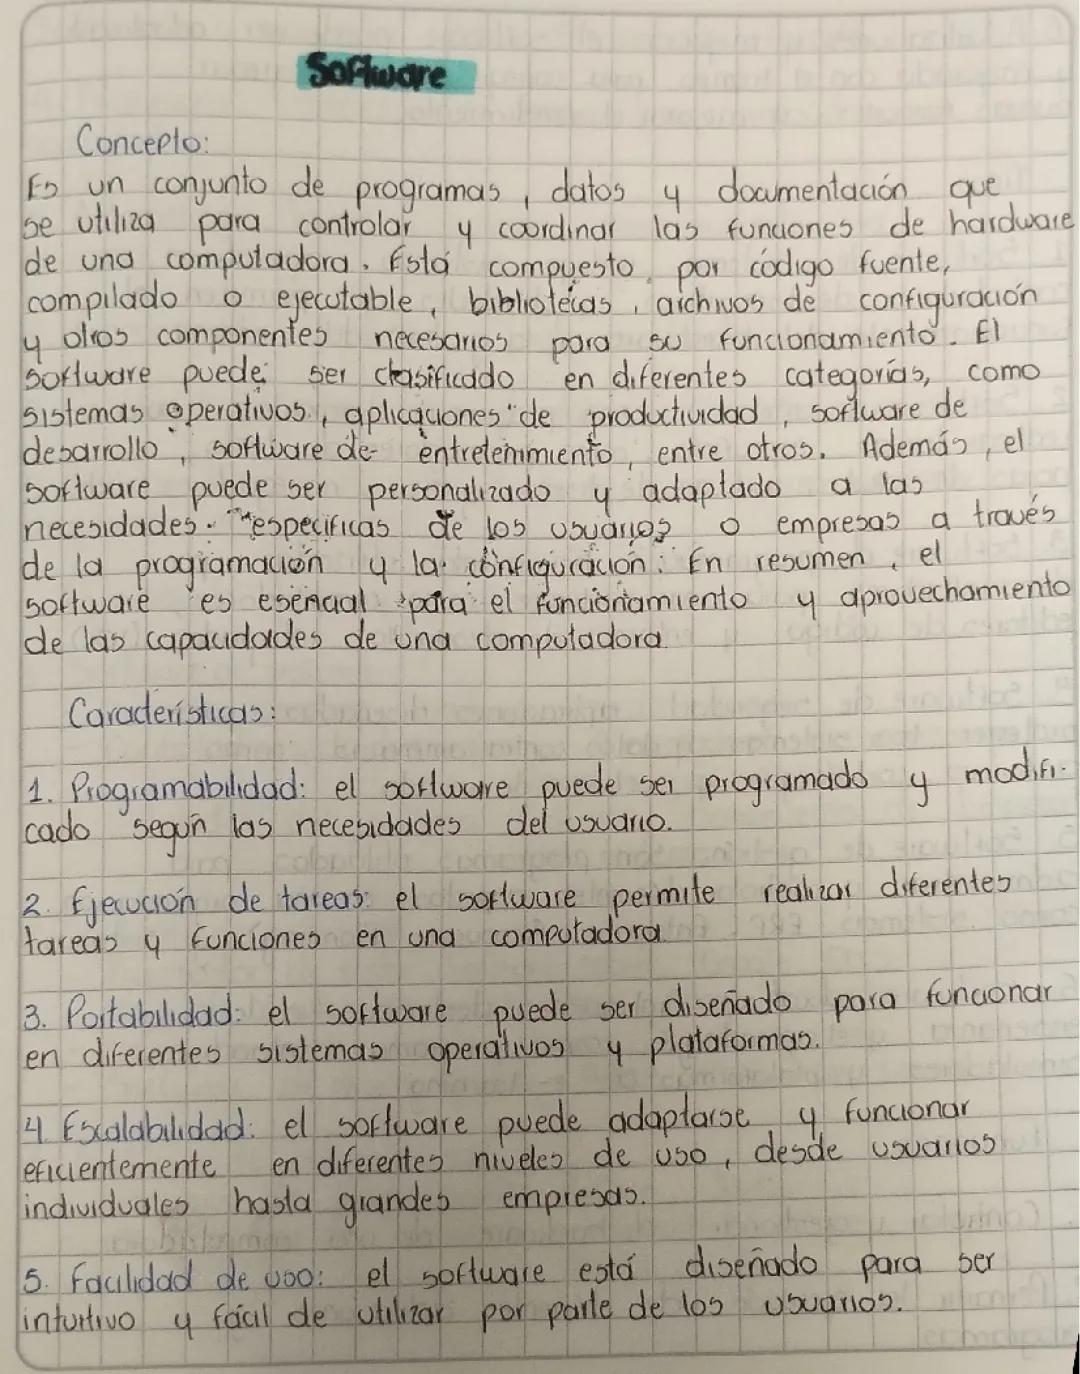 Software
Concepto:
Es un conjunto de programas, datos y documentación que
se utiliza para controlar y coordinar las funciones de hardware
de una computadora. Está compuesto por código fuente,
compilado o ejecutable, bibliotecas, archivos de configuración
y otros componentes necesarios para su funcionamiento. El
software puede ser clasificado en diferentes categorías, como
sistemas operativos, aplicaciones de productividad, software de
desarrollo, software de entretenimiento, entre otros. Además, el
software puede ser personalizado y adaptado a las
necesidades especificas de los usuarios o empresas a través
de la programación y la configuración. En resumen, el
software es esencial para el funcionamiento y aprovechamiento
de las capacidades de una computadora
Características:
1. Programabilidad: el software puede ser programado y modifi-
cado según las necesidades del usuario.
2. Ejecución de tareas: el software permite realizar diferentes
tareas y funciones en una computadora
3. Portabilidad: el software puede ser diseñado para funcionar
en diferentes sistemas operativos y plataformas.
4 Escalabilidad: el software puede adaptarse y funcionar
eficientemente en diferentes niveles de uso, desde usuarios
individuales hasta grandes empresas.
5. Facilidad de uso: el software está diseñado para ser
intuitivo y fácil de utilizar por parte de los usuarios.